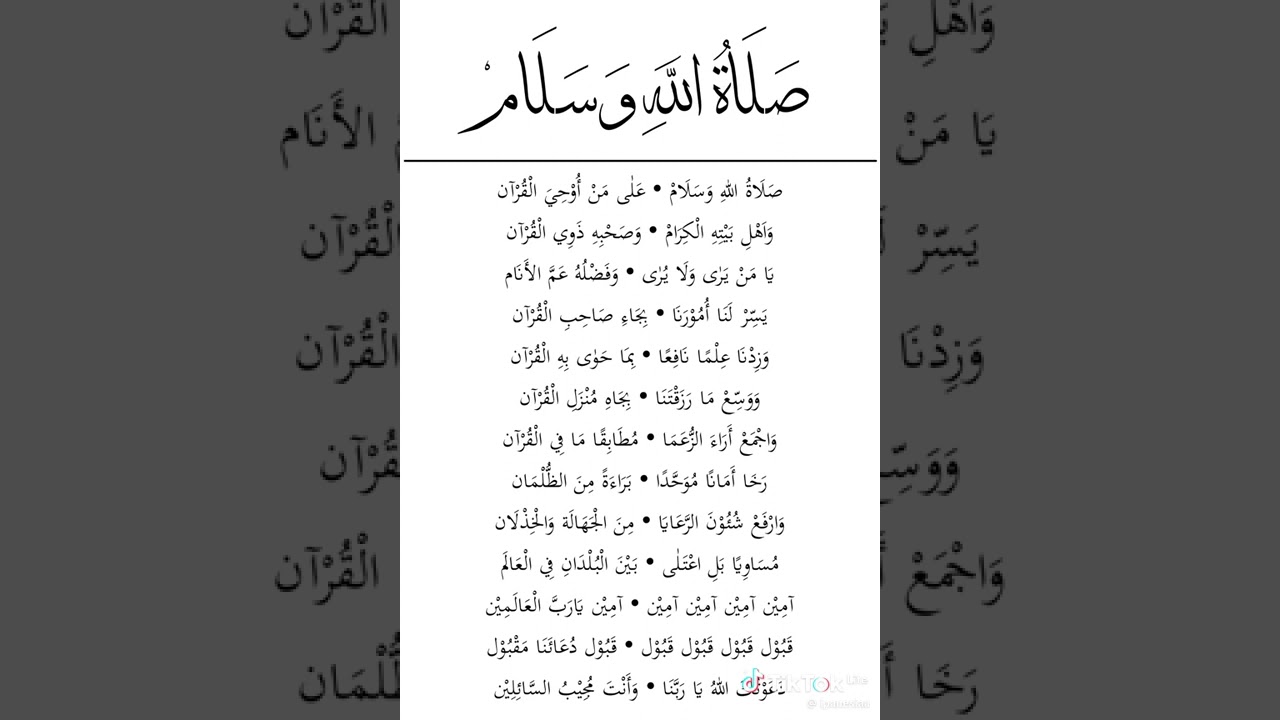 صَلَاةُ اللهِ وَسَلَامْ
صَلَاةُ اللهِ وَسَلَامْ • عَلٰى مَنْ أُوْحِيَ الْقُرْآن
وَاَهْلِ بَيْتِهِ الْكِرَامْ • وَصَحْبِهِ ذَوِي الْقُرْآن
يَا مَنْ يَرٰى وَلَا يُرٰى • وَفَضْلُهُ عَمَّ الأَنَام
يَسِّرْ لَنَا أُمُوْرَنَا • بِجَاءِ صَاحِبِ الْقُرْآن
وَزِدْنَا عِلْمًا نَافِعًا • بِمَا حَوٰى بِهِ الْقُرْآن
وَوَسِّعْ مَا رَزَقْتَنَا • بِجَاهِ مُنْزَلِ الْقُرْآن
وَاجْمَعْ أَرَاءَ الزُّعَمَا • مُطَابِقًا مَا فِي الْقُرْآن
رَخَا أَمَانًا مُوَحَّدًا • بَرَاءَةً مِنَ الظُّلْمَان
وَارْفَعْ شُئُوْنَ الرَّعَايَا • مِنَ الْجَهَالَة وَالْخِذْلَان
مُسَاوِيًا بَلِ اعْتَلٰى • بَيْنَ الْبُلْدَانِ فِي الْعَالَمْ
آمِيْن آمِيْن آمِيْن آمِيْن • آمِيْن يَارَبَّ الْعَالَمِيْن
قَبُوْل قَبُوْل قَبُوْل قَبُوْل • قَبُوْل دُعَائَنَا مَقْبُوْل
دَعَوْنَاكَ اللهُ يَا رَبَّنَا • وَأَنْتَ مُجِيْبُ السَّائِلِيْن
TikTok Lite